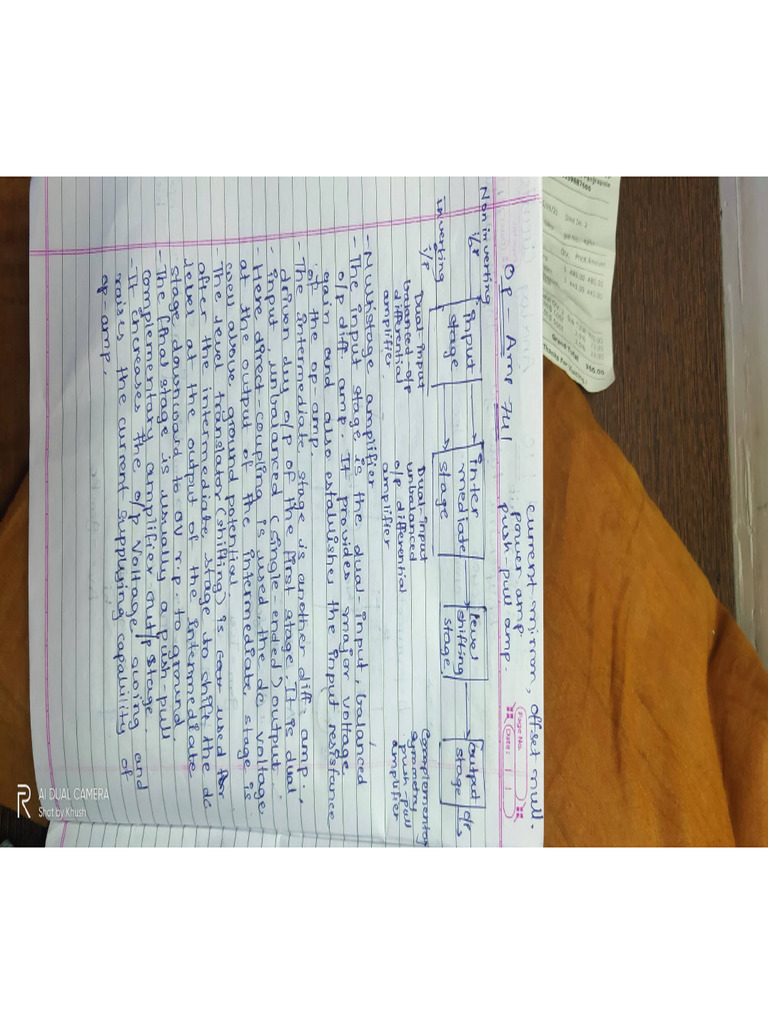 current mirror, offset null.
power amp.
push pull amp.
Page No.
Date:
Op-Amp 741
Non inverting
i/p
inverting
i/p
Input
stage
Inter
mediate
stage
level
shifting
stage
output
stage
o/p
Dual-input
balanced-o/p
differential
amplifier
Dual-input
unbalanced
o/p differential
amplifier
Complementary
symmetry
push-pull
amplifier
- Multistage amplifier
- The input stage is the dual input, balanced
o/p diff. amp. It provides major voltage
gain and also establishes the input resistance
of the op-amp.
- The intermediate stage is another diff. amp.,
driven by o/p of the first stage. It is dual
input, unbalanced (single ended) output.
- Here direct-coupling is used, the dc voltage
at the output of the intermediate stage is
well above ground potential
- The level translator (shifting) is used
after the intermediate stage to shift the dc
level at the output of the intermediate
stage downward to 0V r.p. to ground
- The final stage is usually a push-pull
complementary amplifier out/p stage.
- It increases the o/p voltage swing and
raises the current supplying capability of
op-amp.
Grand Total
386.00
Price Amount
480.00 480.00
AI DUAL CAMERA
Shot by Khush